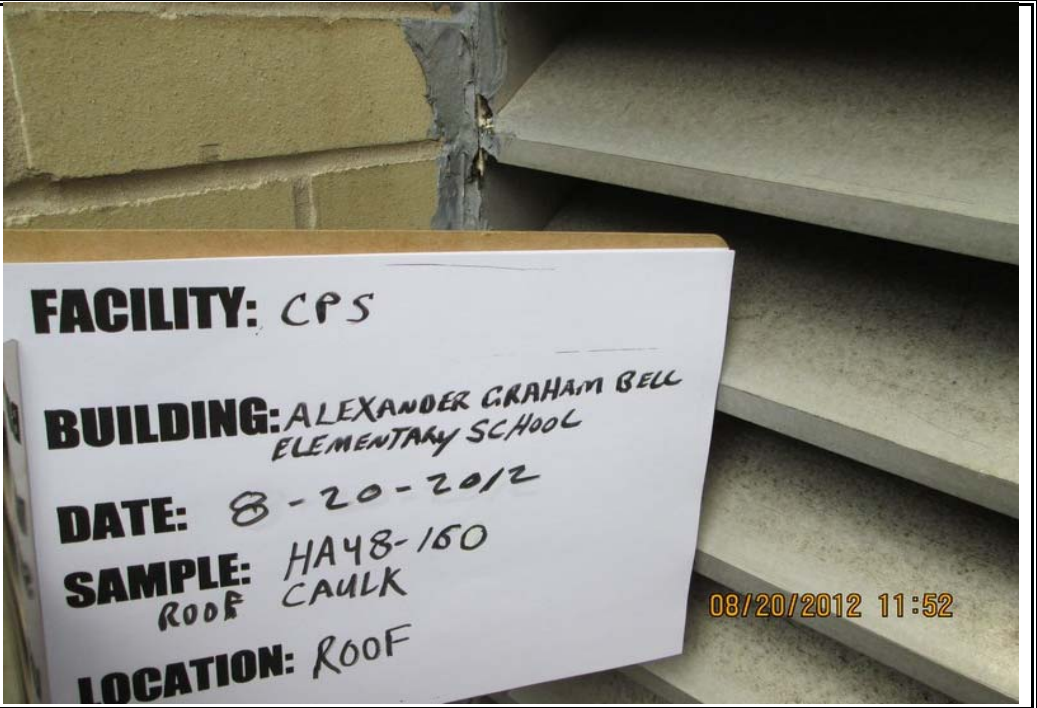 FACILITY: CPS
BUILDING: ALEXANDER GRAHAM BELL
ELEMENTARY SCHOOL
DATE: 8-20-2012
SAMPLE: HA48-160
ROOF CAULK
LOCATION: ROOF
08/20/2012 11:52